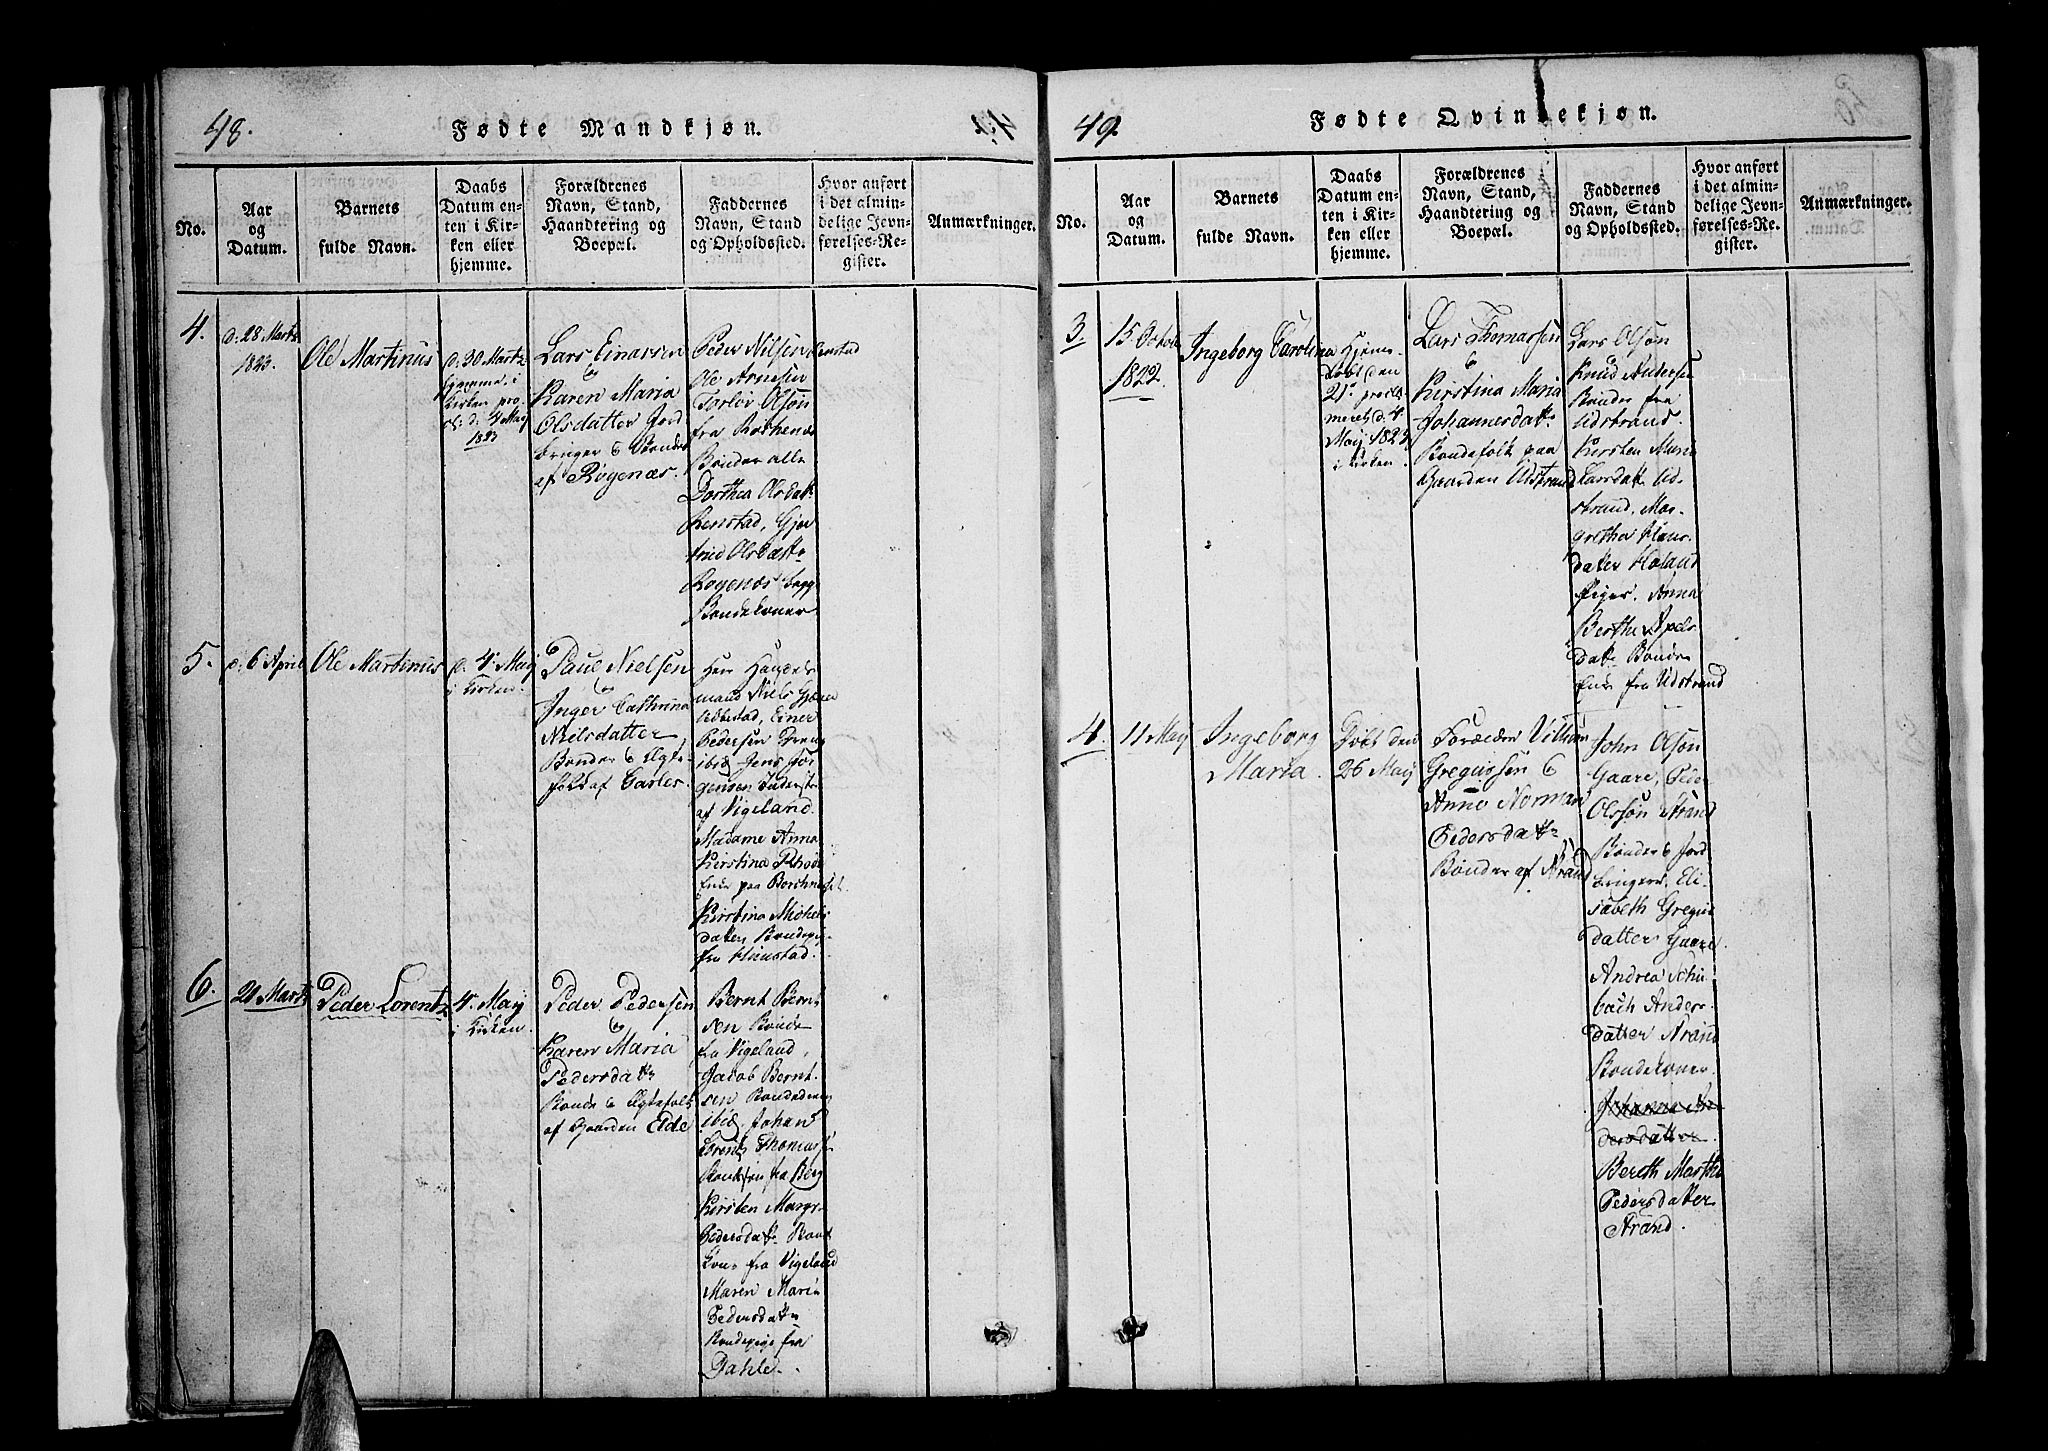 48.
Fødte Mandkjøn.
No.
Aar
og
Datum.
Barnets
fulde Navn.
Daabs
Datum en-
ten i Kir-
ken eller
hjemme.
Forældrenes
Navn, Stand,
Haandtering og
Boepæl.
Faddernes
Navn, Stand
og Opholdssted.
Hvor anført
i det almin-
delige Jevn-
førelses-Re-
gister.
Anmærkninger.
4.
d. 28 Martz
1823.
Ole Martinus
d. 30 Martz
hjemme, i
Kirken pro-
cl: d. 4 May
1823
Lars Einarsen
&
Karen Maria
Olsdatter Jord
bruger &
af Rogenæs.
Peder Nilsen Renstad
Ole Arnesen
Torlov Olsøn
fra
Bønder alle
Dorthea Olsdatt
Renstad, Gjer
trud Olsdatt
Rogenæs begge
Bondekoner.
5.
d. 6 April
Ole Martinus
d. 4 May
i Kirken.
Paul Nielsen
&
Inger Cathrina
Nielsdatter
Bonde & Ægte-
folk af Garles.
Herr Handels
mand Niels
Einer
Pedersen Dreng
ibid, Jens Jør
gensen
af Vigeland.
Madame Anna
Kirstina Rhode
Enke paa
Kirstina Michels
datter Bondepige
fra
6.
21 Martz
Peder Lorentz
4. May
i Kirken.
Peder Pedersen
&
Karen Maria
Pedersdatt
Bonde & Ægtefolk
af Gaarden Eide
Bernt Bernt
sen Bonde
fra Vigeland,
Jacob Bernt
sen Bondedreng
ibid, Johan
Lorents Thomass
Bondesøn fra Berg
Kirsten Margr.
Pedersdatt Bond
kone fra Vigeland
Maren Marie
Pedersdatter
Bondepige fra
Dahle.
49.
Fødte Qvindekjøn.
No.
Aar
og
Datum.
Barnets
fulde Navn.
Daabs
Datum en-
ten i Kir-
ken eller
hjemme.
Forældrenes
Navn, Stand,
Haandtering og
Boepæl.
Faddernes
Navn, Stand
og Opholdssted.
Hvor anført
i det almin-
delige Jevn-
førelses-Re-
gister.
Anmærkninger.
3.
15 October
1822.
Ingeborg Carolina
Hjemme-
døbt den
21de procla
meret d. 4.
May 1823
i Kirken.
Lars Thomassen
&
Kirstina Maria
Johannesdatt
Bondefolk paa
Gaarden Udstrand
Lars Olsøn
Knud Andersen
Bønder fra
Udstrand.
Kirsten Maria
Larsdatt Ud-
strand, Mar-
gretha Hans-
datter Holand
Piger. Anna
Bertha Apels
datt Bonde
Enke fra Udstrand
4.
11 May
Ingeborg
Maria.
Døbt den
26 May
Forælder Villum
Gregussen &
Anne Norman
Pedersdatt
Bønder af Strand
John Olsøn
Gaare, Peder
Olssøn Strand
Bønder & Jord
brugere, Eli-
sabeth Gregus
datter Gaare
Andrea Schu-
bach Anders-
datter Strand
Bondekoner.
Johanna An-
dersdatter
Bereth Martha
Pedersdatter
Strand.